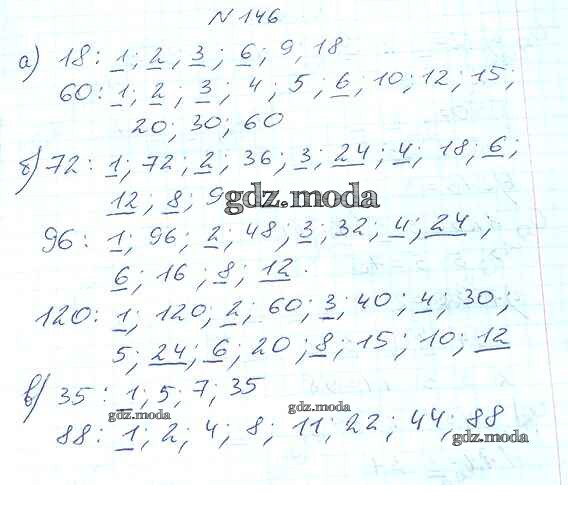 N 146
а) 18: 1; 2; 3; 6; 9, 18
60: 1; 2; 3; 4; 5; 6; 10; 12; 15;
20; 30; 60
б) 72: 1; 72; 2; 36; 3; 24; 4; 18; 6;
12; 8; 9
gdz.moda
96: 1; 96; 2; 48; 3; 32; 4; 24;
6; 16; 8; 12.
120: 1; 120; 2; 60; 3; 40; 4; 30;
5; 24; 6; 20; 8; 15; 10; 12
в) 35: 1; 5; 7; 35
gdz.moda gdz.moda
88: 1; 2; 4; 8; 11; 22; 44; 88
gdz.moda